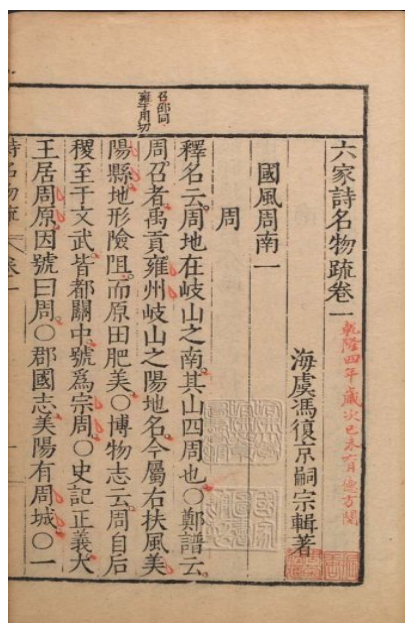 六家詩名物疏卷一
乾隆四年歲次己未
海虞馮復京嗣宗輯著
國風周南一
周
釋名云周地在岐山之南其山四周也○鄭譜云
周召者禹貢雍州岐山之陽地名今屬右扶風美
陽縣地形險阻而原田肥美○博物志云周自后
稷至于文武皆都關中號為宗周○史記正義太
王居周原因號曰周○郡國志美陽有周城○一
召邵同
雍於用切
詩名物疏 卷一